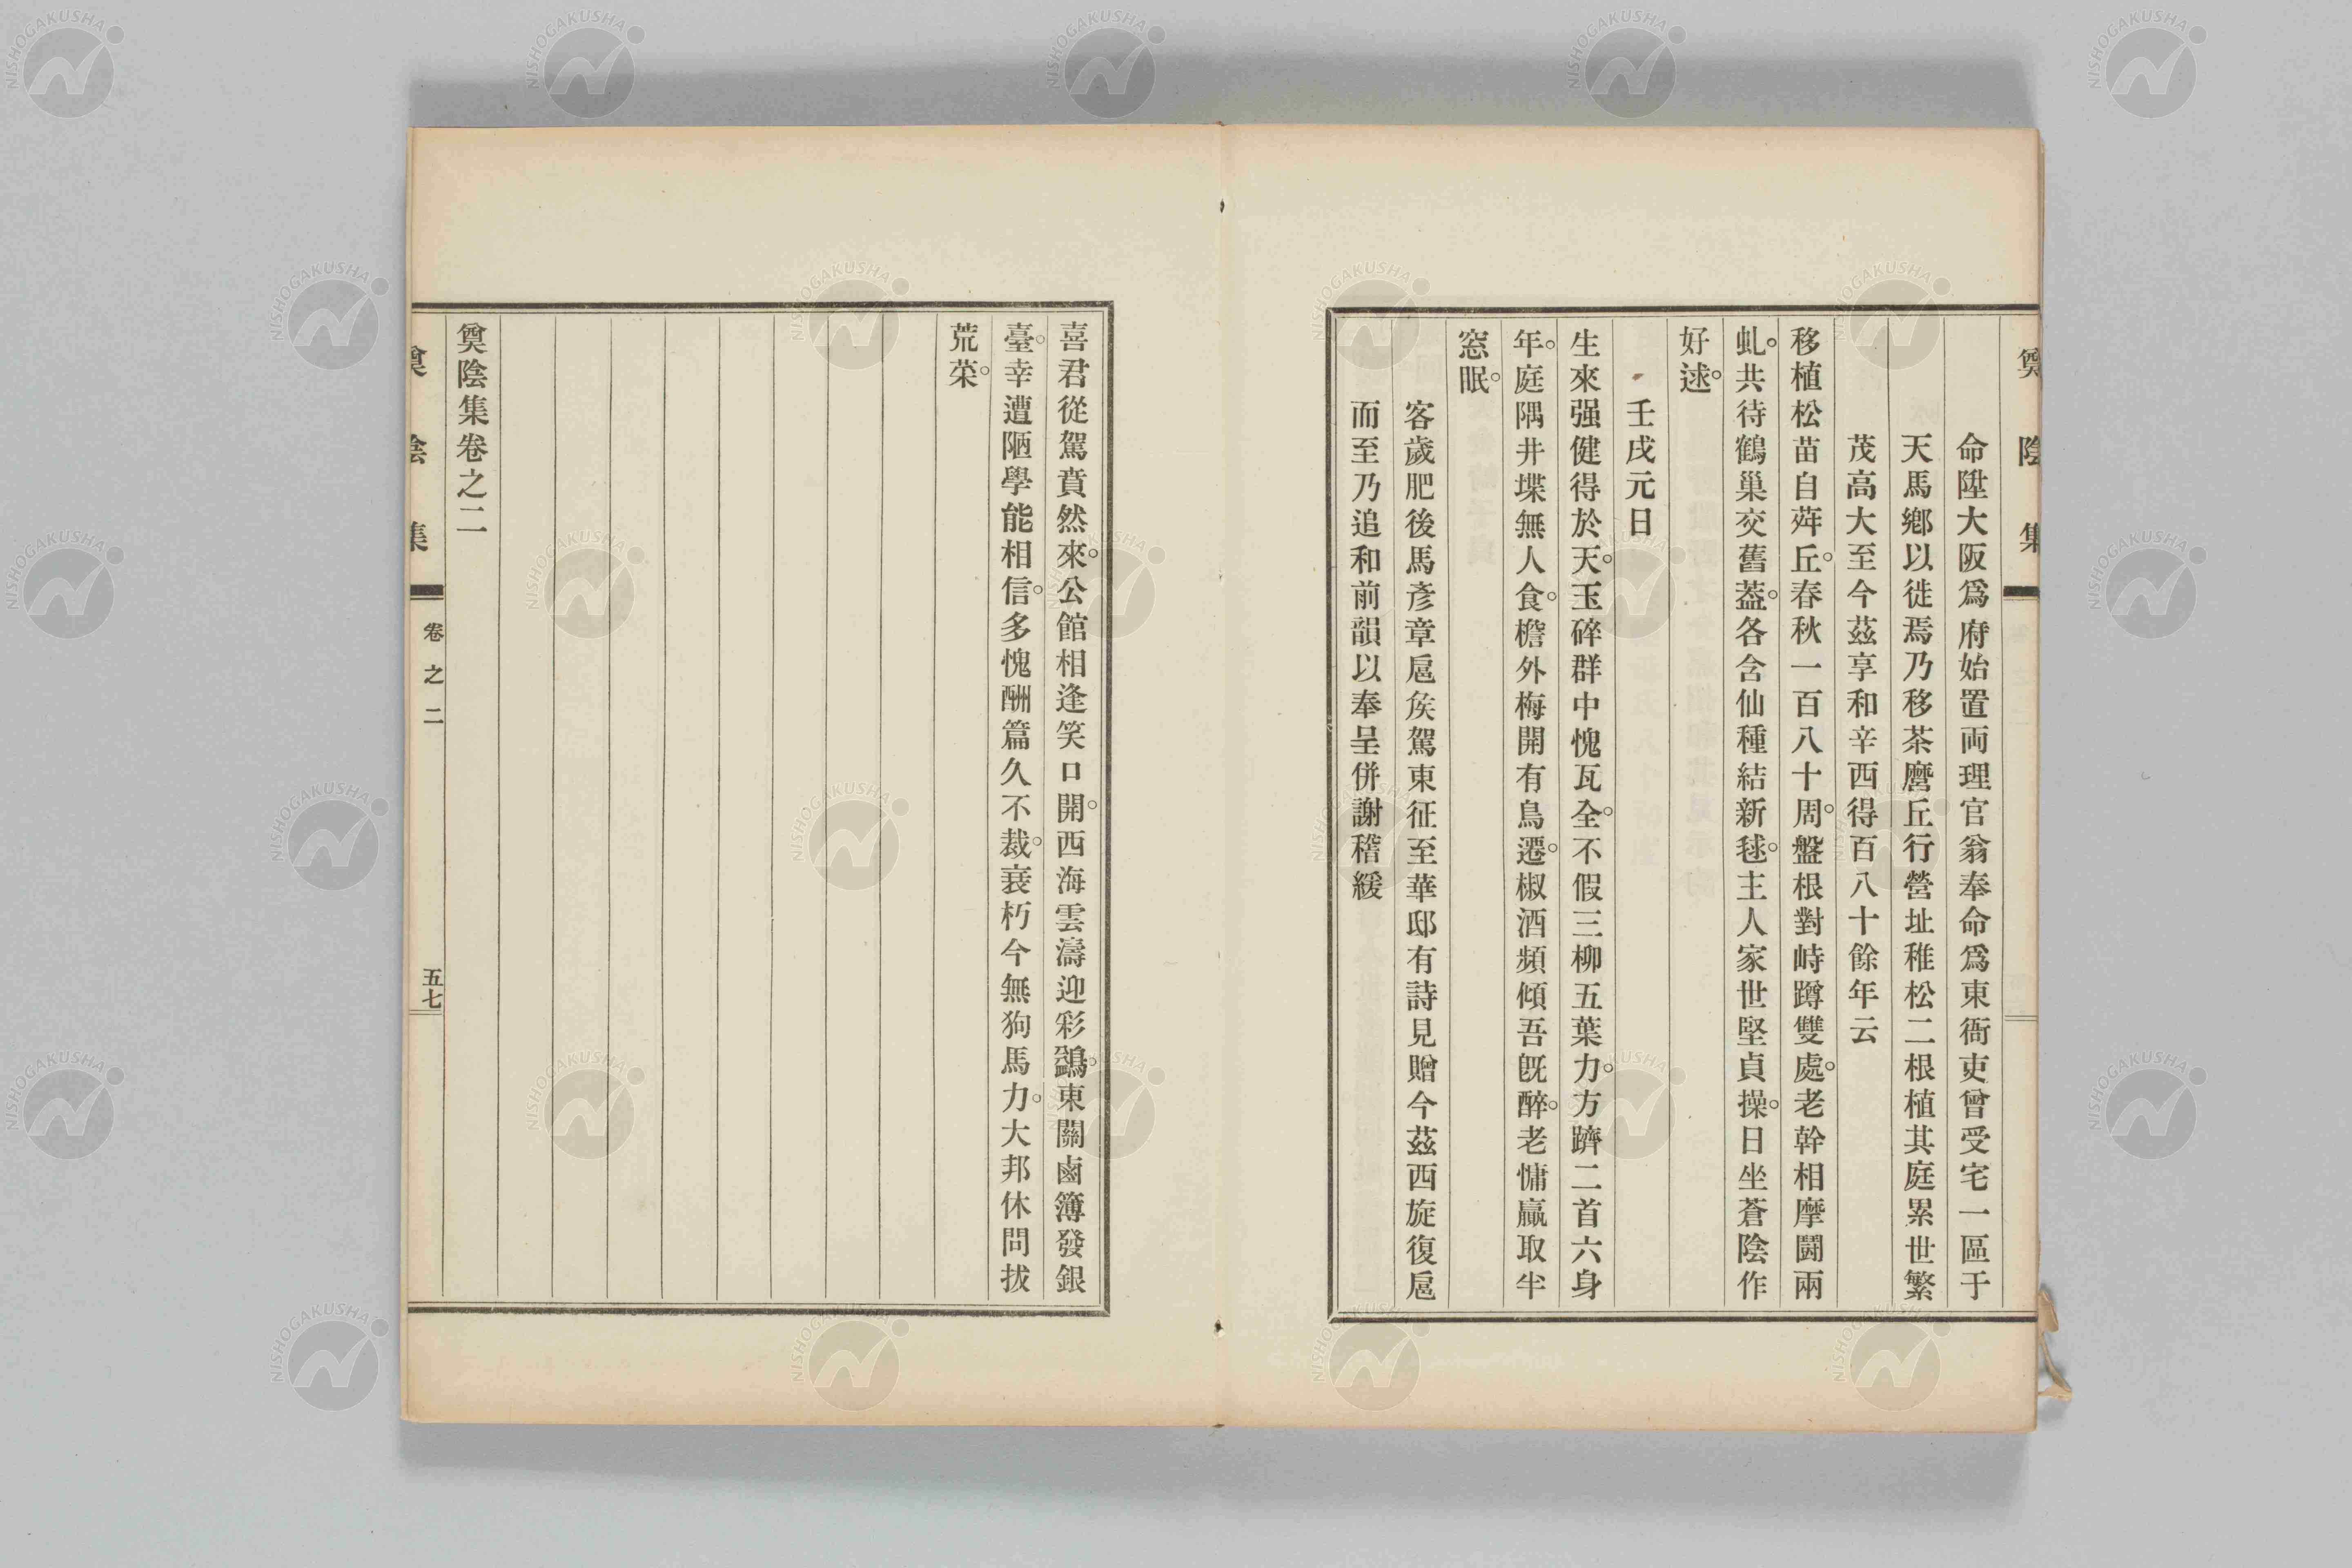 奠陰集
命陞大阪爲府始置両理官翁奉命爲東衙吏曾受宅一區于
天馬鄕以徙焉乃移茶磨丘行營址稚松二根植其庭累世繁
茂高大至今茲享和辛酉得百八十餘年云
移植松苗自荈丘。春秋一百八十周。盤根對峙蹲雙處。老幹相摩鬪兩
虬。共待鶴巢交舊蓋。各含仙種結新毬。主人家世堅貞操。日坐蒼陰作
好逑。
壬戌元日
生來强健得於天。玉碎群中愧瓦全。不假三柳五葉力。方躋二首六身
年。庭隅井堞無人食。檐外梅開有鳥遷。椒酒頻傾吾旣醉。老慵贏取半
窓眠。
客歲肥後馬彥章扈矦駕東征至華邸有詩見贈今茲西旋復扈
而至乃追和前韻以奉呈併謝稽緩
喜君從駕賁然來。公館相逢笑口開。西海雲濤迎彩鷁。東關鹵簿發銀
臺。幸遭陋學能相信。多愧酬篇久不裁。衰朽今無狗馬力。大邦休問拔
荒萊。
奠陰集卷之二
奠陰集
卷之二
五七
NISHOGAKUSHA